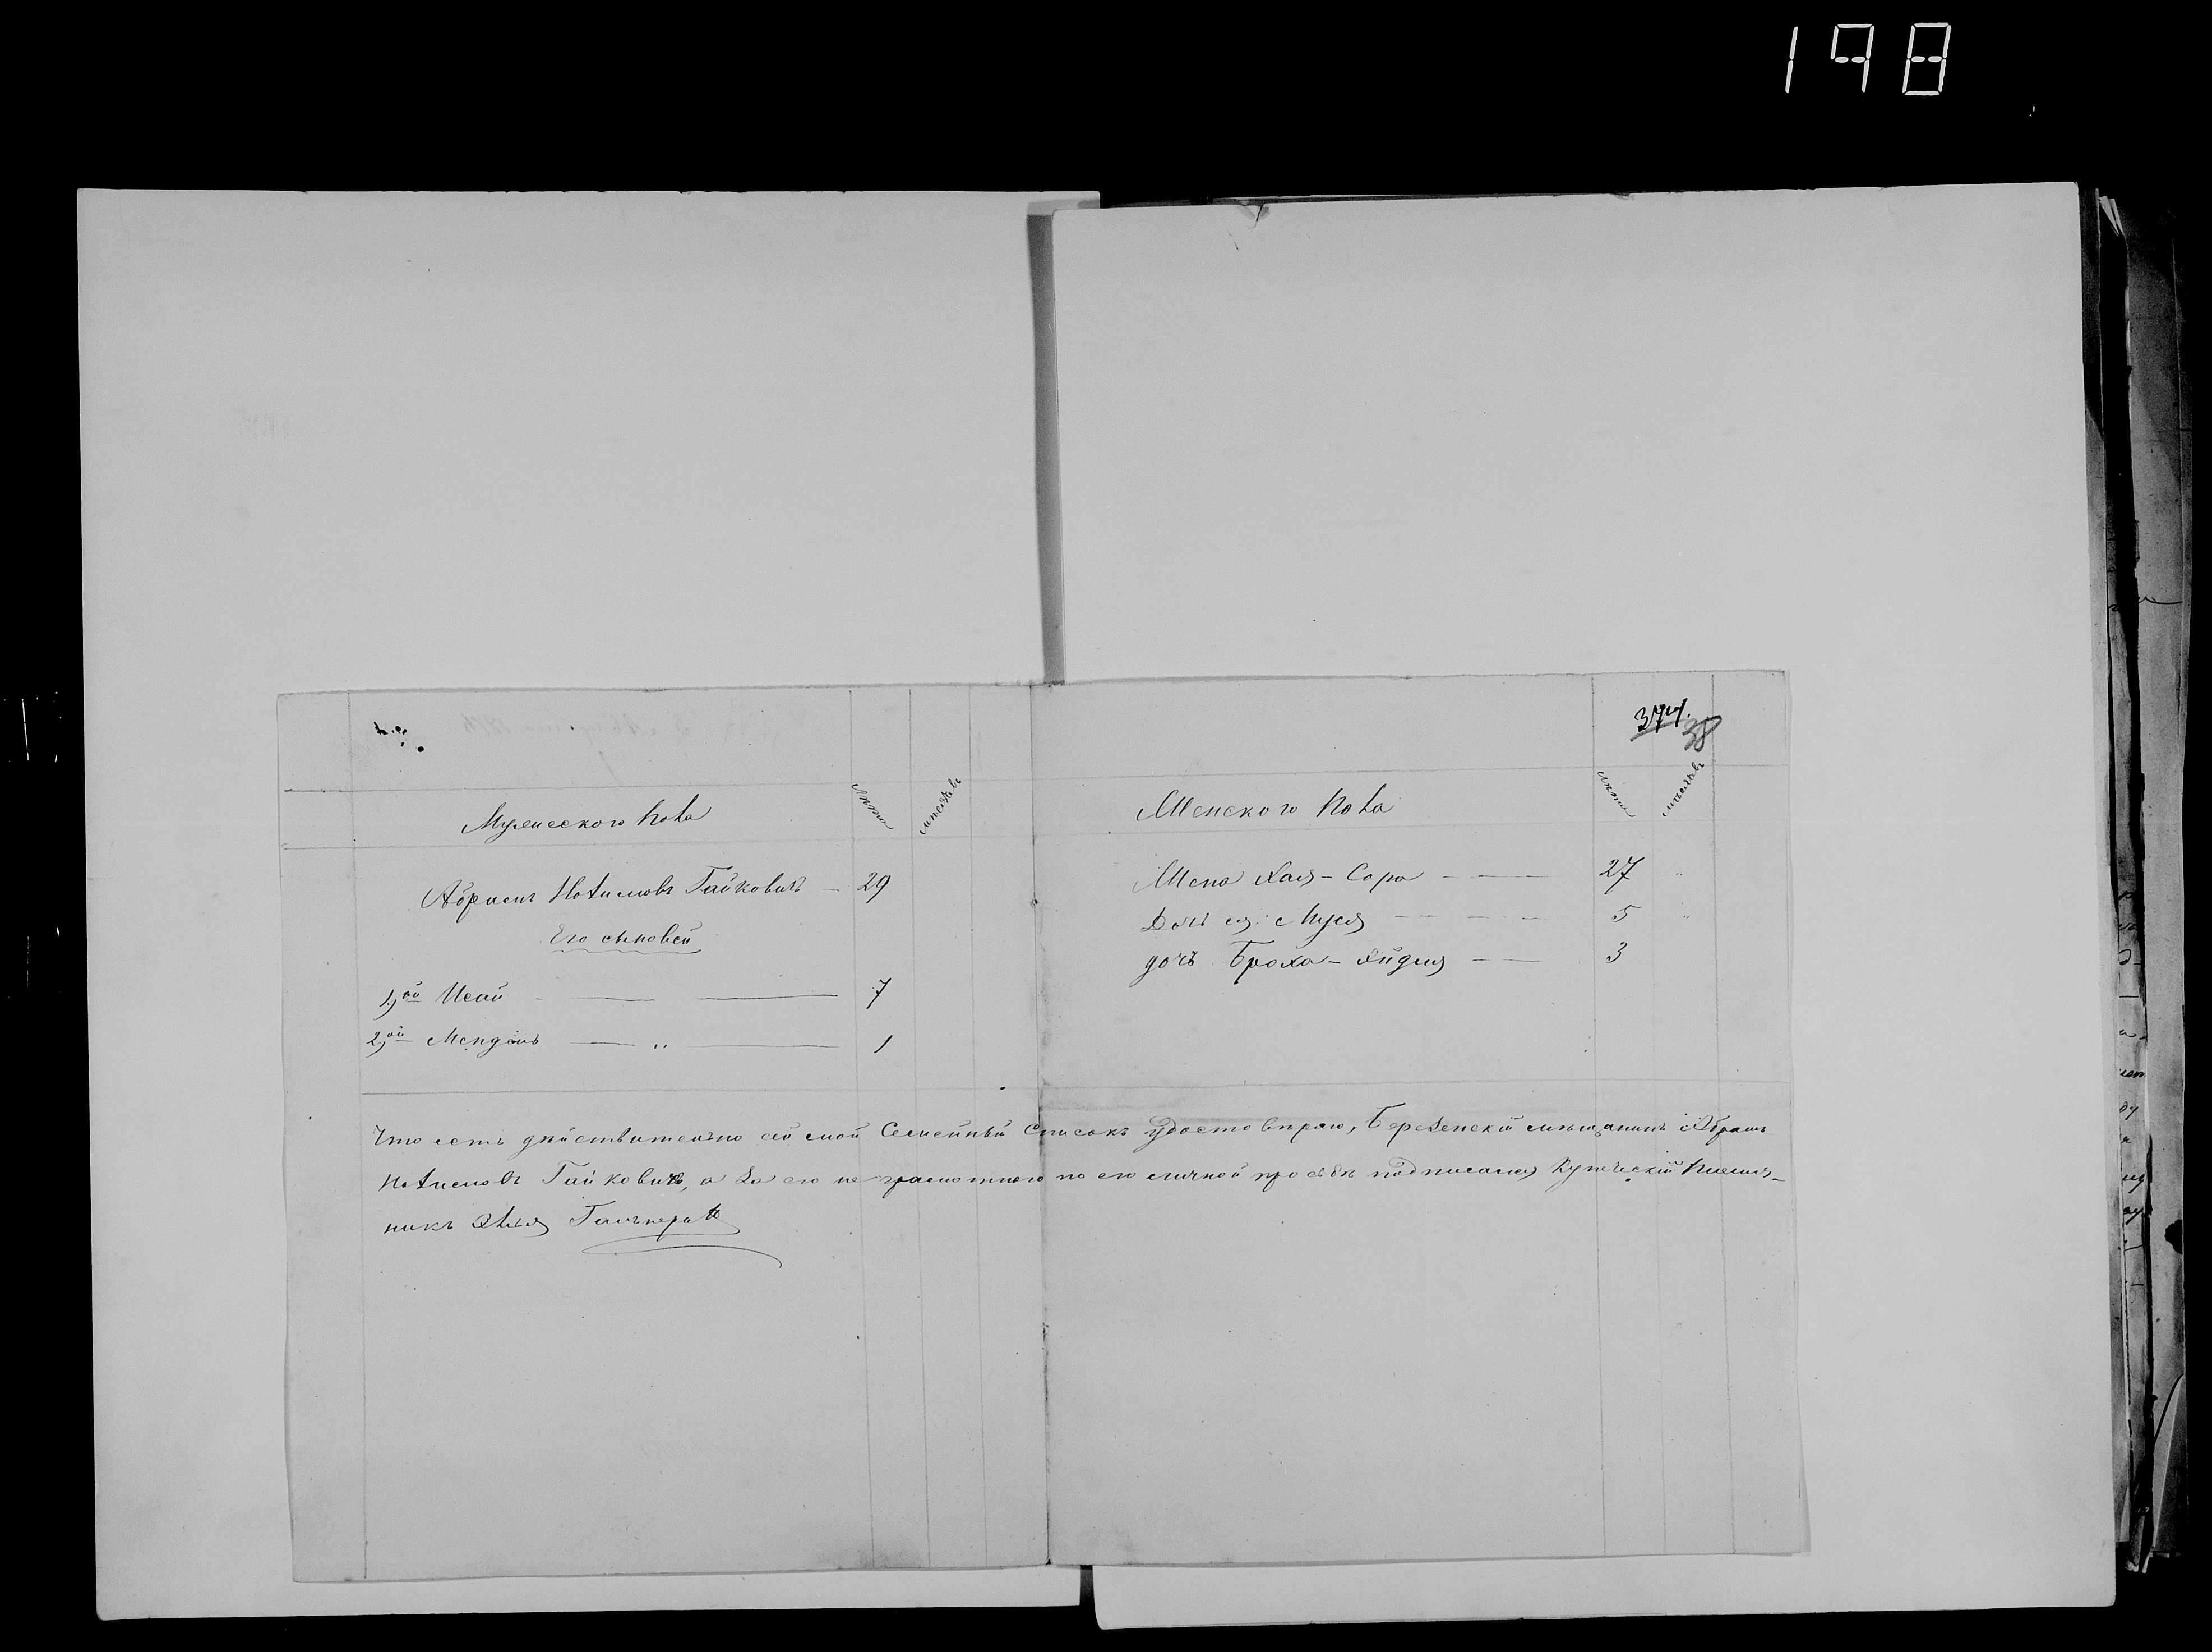 198
374.
38
Мужескаго пола
лѣта
мѣсяцевъ
Абрамъ Нотилювъ Гайковичъ — 29
Его сыновей
1,ой Исай — — 7
2,ой Мендель — „ — 1
Женского пола
лѣта
мѣсяцевъ
Жена Хая-Сора — — 27 „
Дочь ея Муся — — — 5 „
дочь Броха-Айдля — — 3
Что есть дѣйствительно сей мой Семейный Списокъ удостовѣряю, Березенскій мѣщанинъ Абрамъ
Нотилювъ Гайковичъ, а за его не грамотного по его личной прозбѣ подписался Купеческій Племян-
никъ